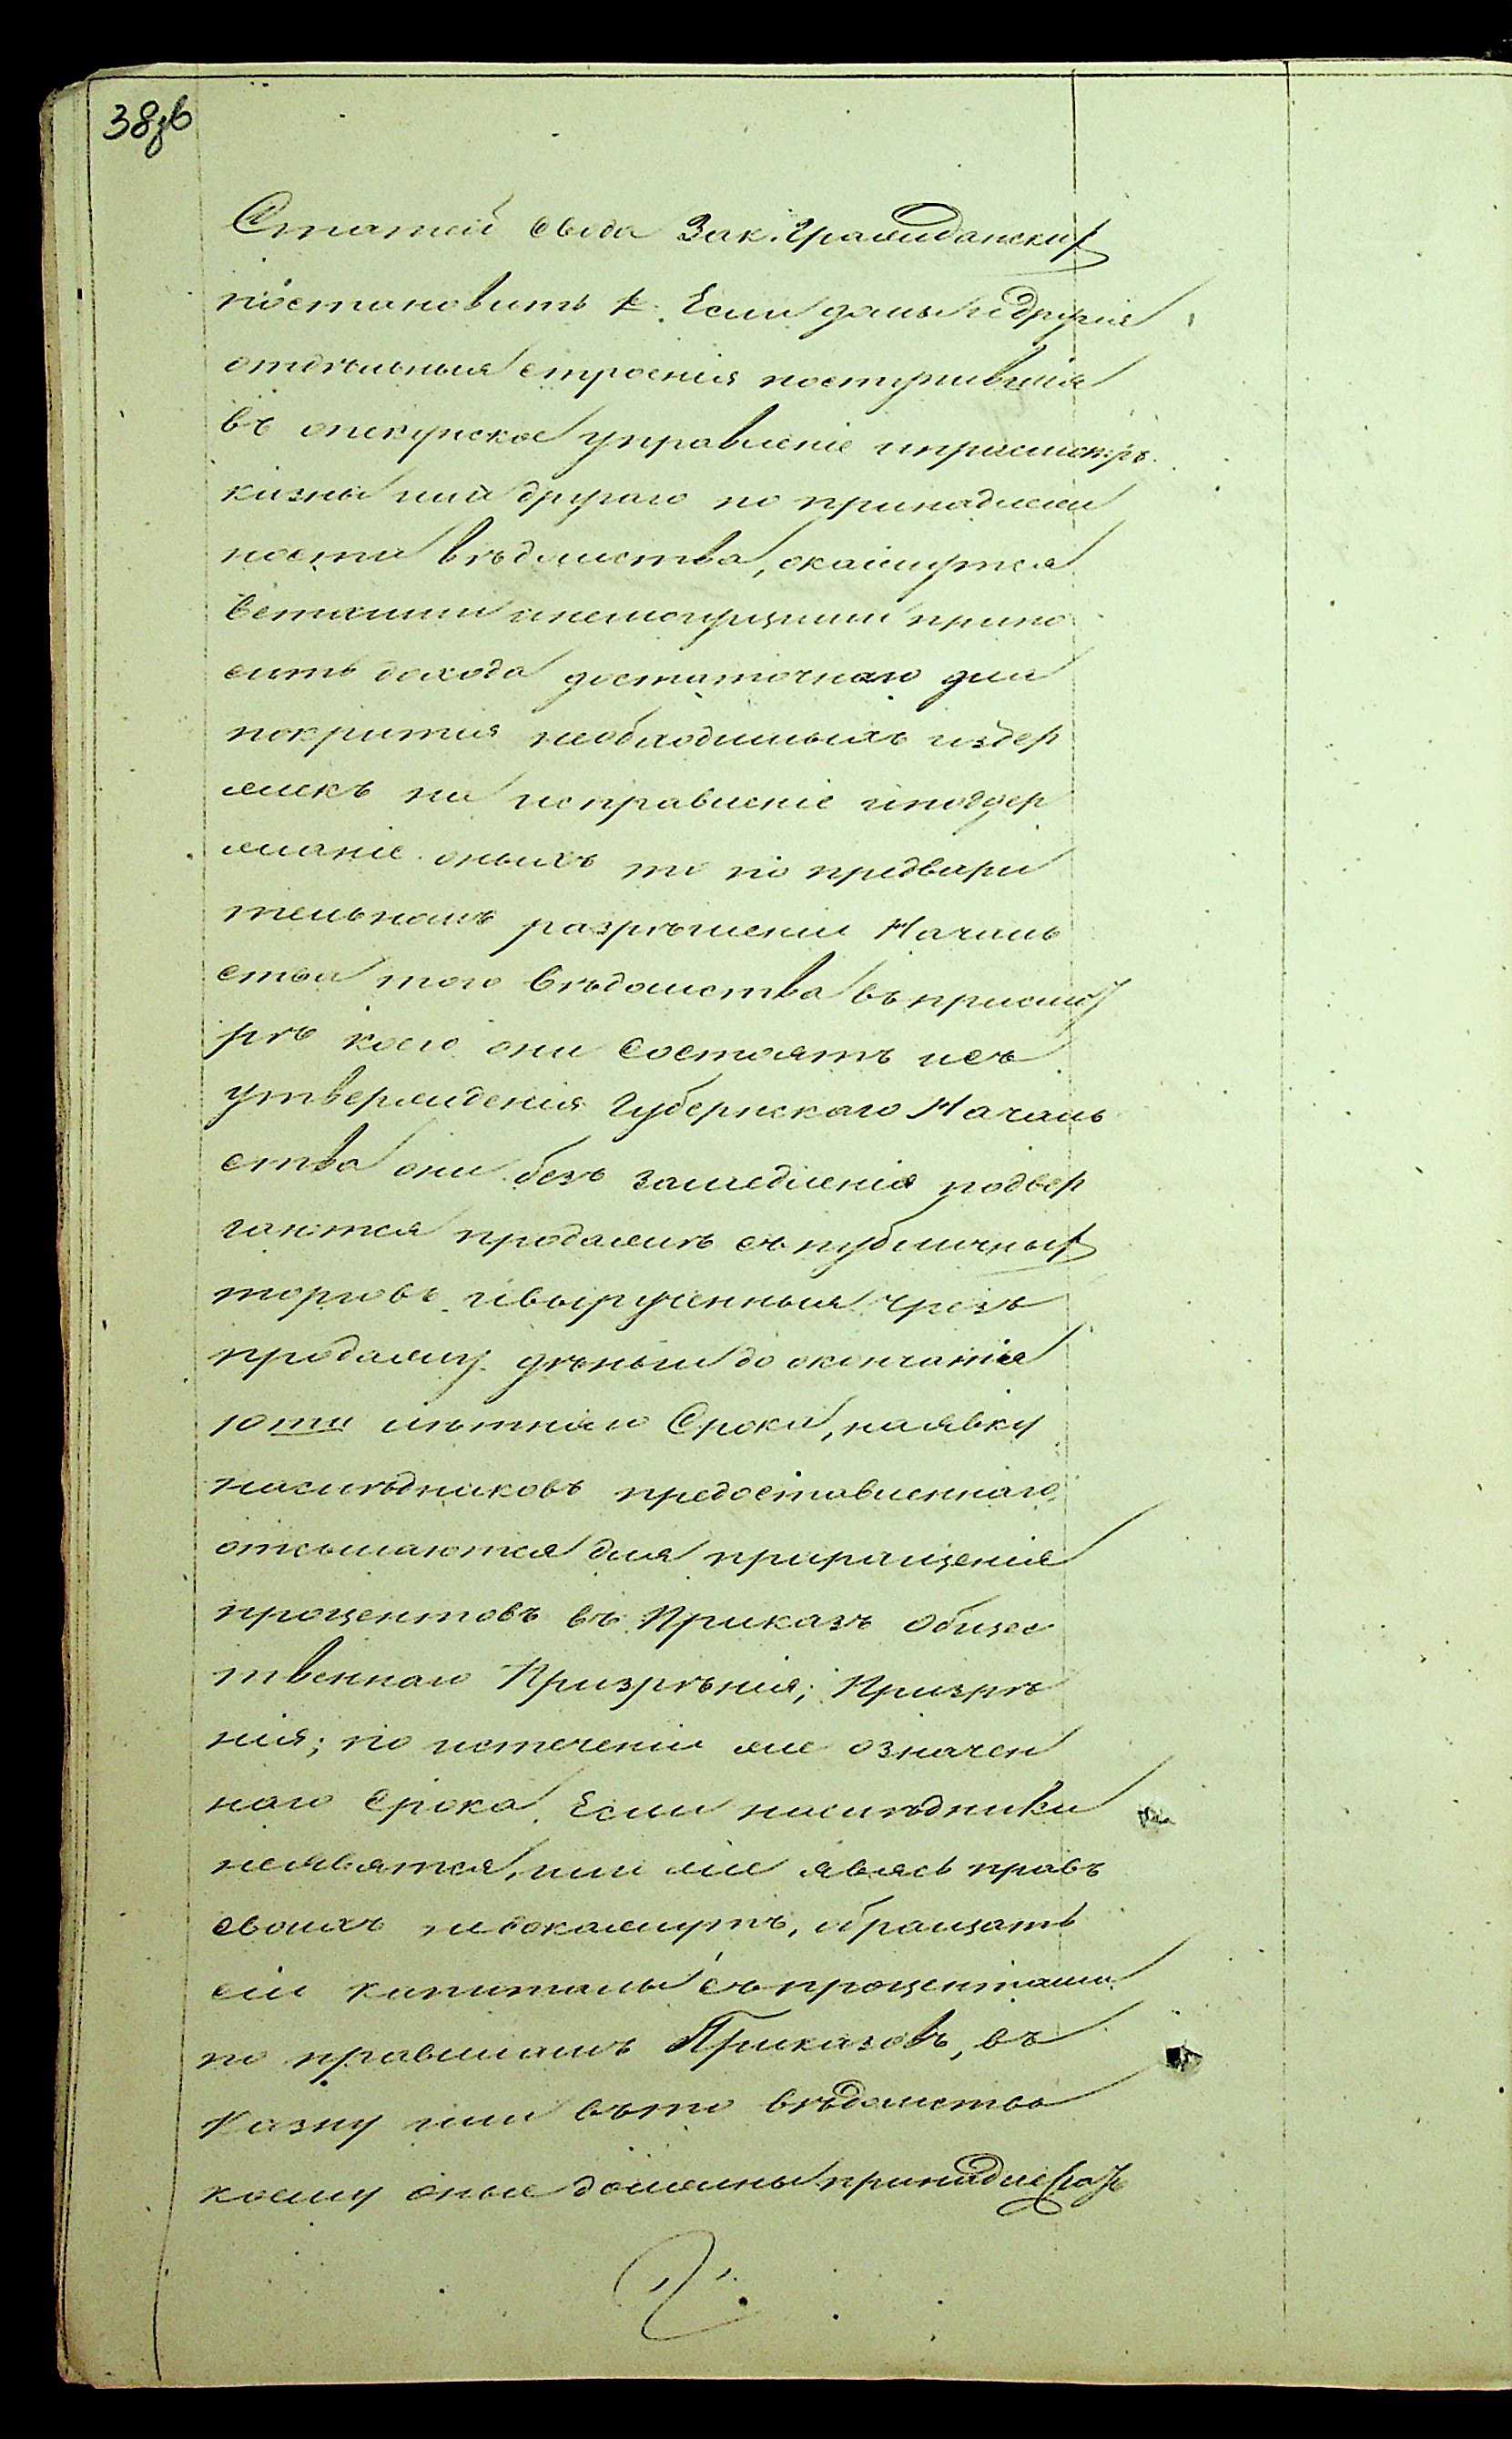 38зв
Статей свода Зак. Гражданских
постановить: Если домы и другія
отдѣльныя строенія поступившія
въ опекунское управленіе и присмотръ
казны или другаго по принадлеж
ности вѣдомства, окажутся
ветхими и немогущими прино
сить дохода достаточнаго для
покрытия необходимыхъ издер
жекъ на исправленіе и поддер
жаніе оныхъ то по предвари
тельномъ разрѣшеніи Началь
ства того вѣдомства въ присмо
рѣ коего они состоятъ и съ
утвержденія Губернскаго Началь
ства они безъ замедленія подвер
гаются продажѣ съ публичных
торговъ и вырученныя чрезъ
продажу деньги до окончанія
10ти лѣтняго Срока, на явку
наслѣдниковъ предоставленнаго
отсылаются для приращенія
процентовъ въ Приказъ Общес
твеннаго Призрѣнія; Призрѣ
нія; по истеченіи же означен
наго Срока. Если наслѣдники
неявятся, или же явясь правъ
своихъ недокажутъ, обращать
сіи капиталы съ процентами
по правиламъ Приказовъ, въ
Казну или въ то вѣдомство
коему оные должны принадлежать